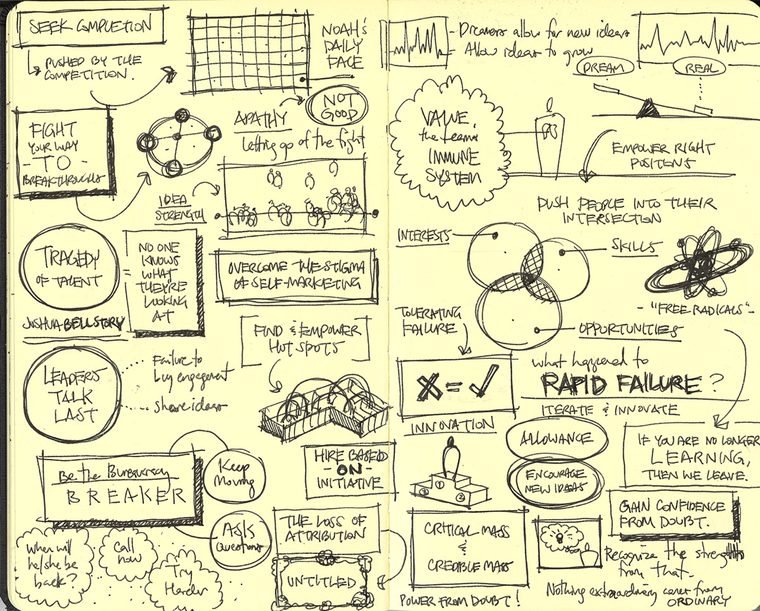 SEEK COMPLETION
PUSHED BY THE
COMPETITION.
NOAH'S
DAILY
FACE
FIGHT
YOUR WAY
- TO -
BREAKTHROUGHS
APATHY
NOT
GOOD
Letting go of the fight
IDEA
STRENGTH
TRAGEDY
OF TALENT
=
NO ONE
KNOWS
WHAT
THEY'RE
LOOKING
AT
JOSHUA BELL STORY
OVERCOME THE STIGMA
OF SELF-MARKETING
FIND & EMPOWER
HOT SPOTS
LEADERS
TALK
LAST
Failure to
buy engagement
share ideas
Be the Bureaucracy
BREAKER
Keep
Moving
ASK
Questions
HIRE BASED
- ON -
INITIATIVE
When will
he/she be
back?
Call
now
Try
Harder
THE LOSS OF
ATTRIBUTION
UNTITLED
- Dreamers allow for new ideas
- Allow ideas to grow
DREAM
REAL
VALUE
the teams
IMMUNE
SYSTEM
EMPOWER RIGHT
POSITIONS
PUSH PEOPLE INTO THEIR
INTERSECTION
INTERESTS
SKILLS
OPPORTUNITIES
- "FREE RADICALS" -
TOLERATING
FAILURE
X = ✓
what happened to
RAPID FAILURE?
ITERATE & INNOVATE
INNOVATION
2 1 3
ALLOWANCE
ENCOURAGE
NEW IDEAS
IF YOU ARE NO LONGER
LEARNING,
THEN WE LEAVE.
CRITICAL MASS
&
CREDIBLE MASS
POWER FROM DOUBT!
GAIN CONFIDENCE
FROM DOUBT.
Recognize the strengths
from that
Nothing extraordinary comes from
ORDINARY